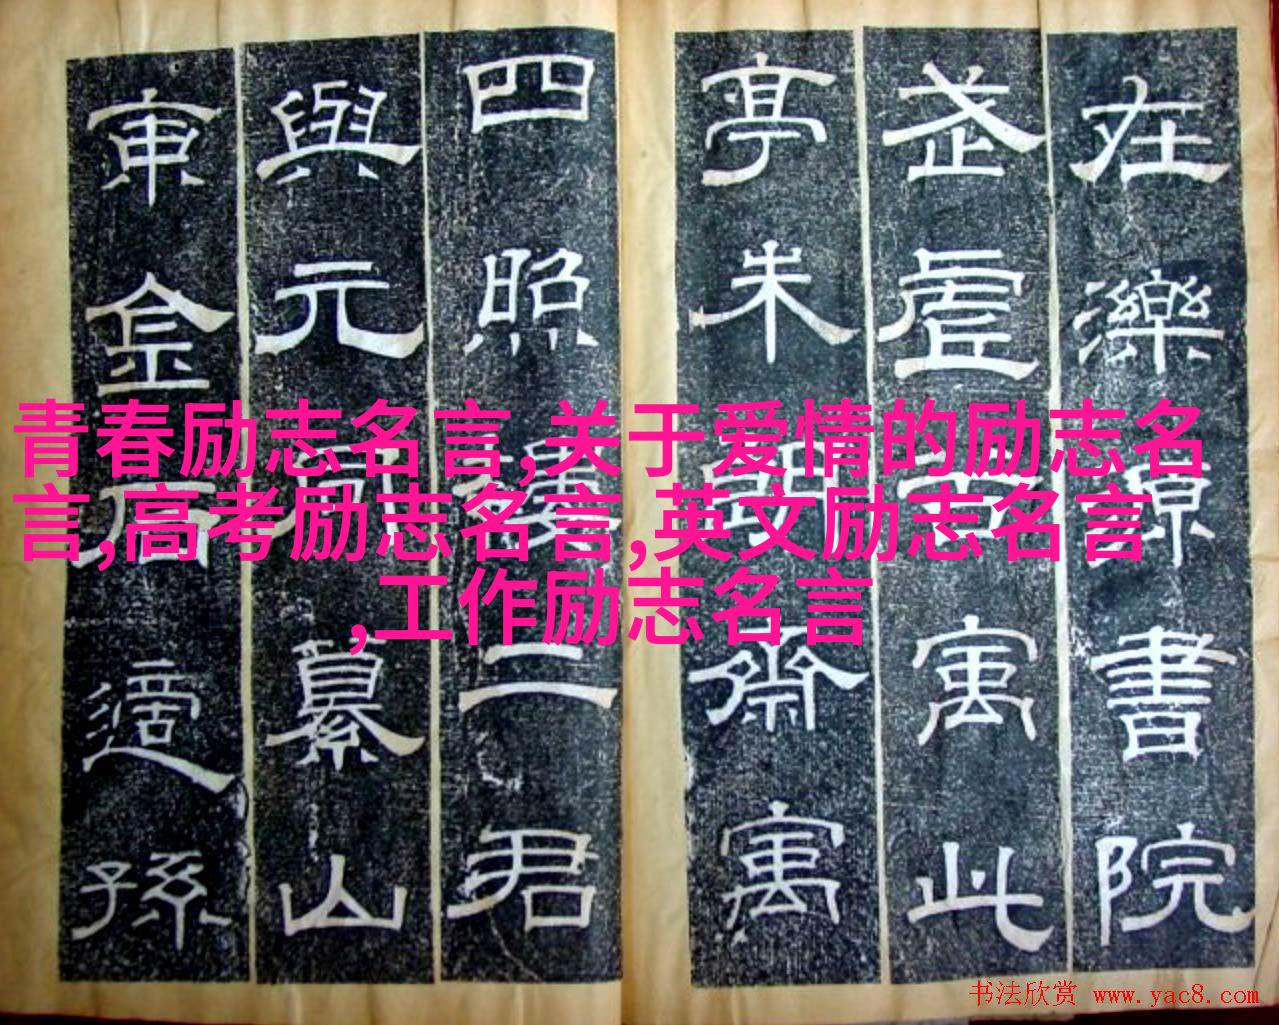 在濼源書院
武虚谷寓此
亭朱朗齋寓
四照樓二君
與元同纂山
東金石適孫
青春励志名言,关于爱情的励志名
言,高考励志名言,英文励志名言
,工作励志名言
书法欣赏 www.yac8.com